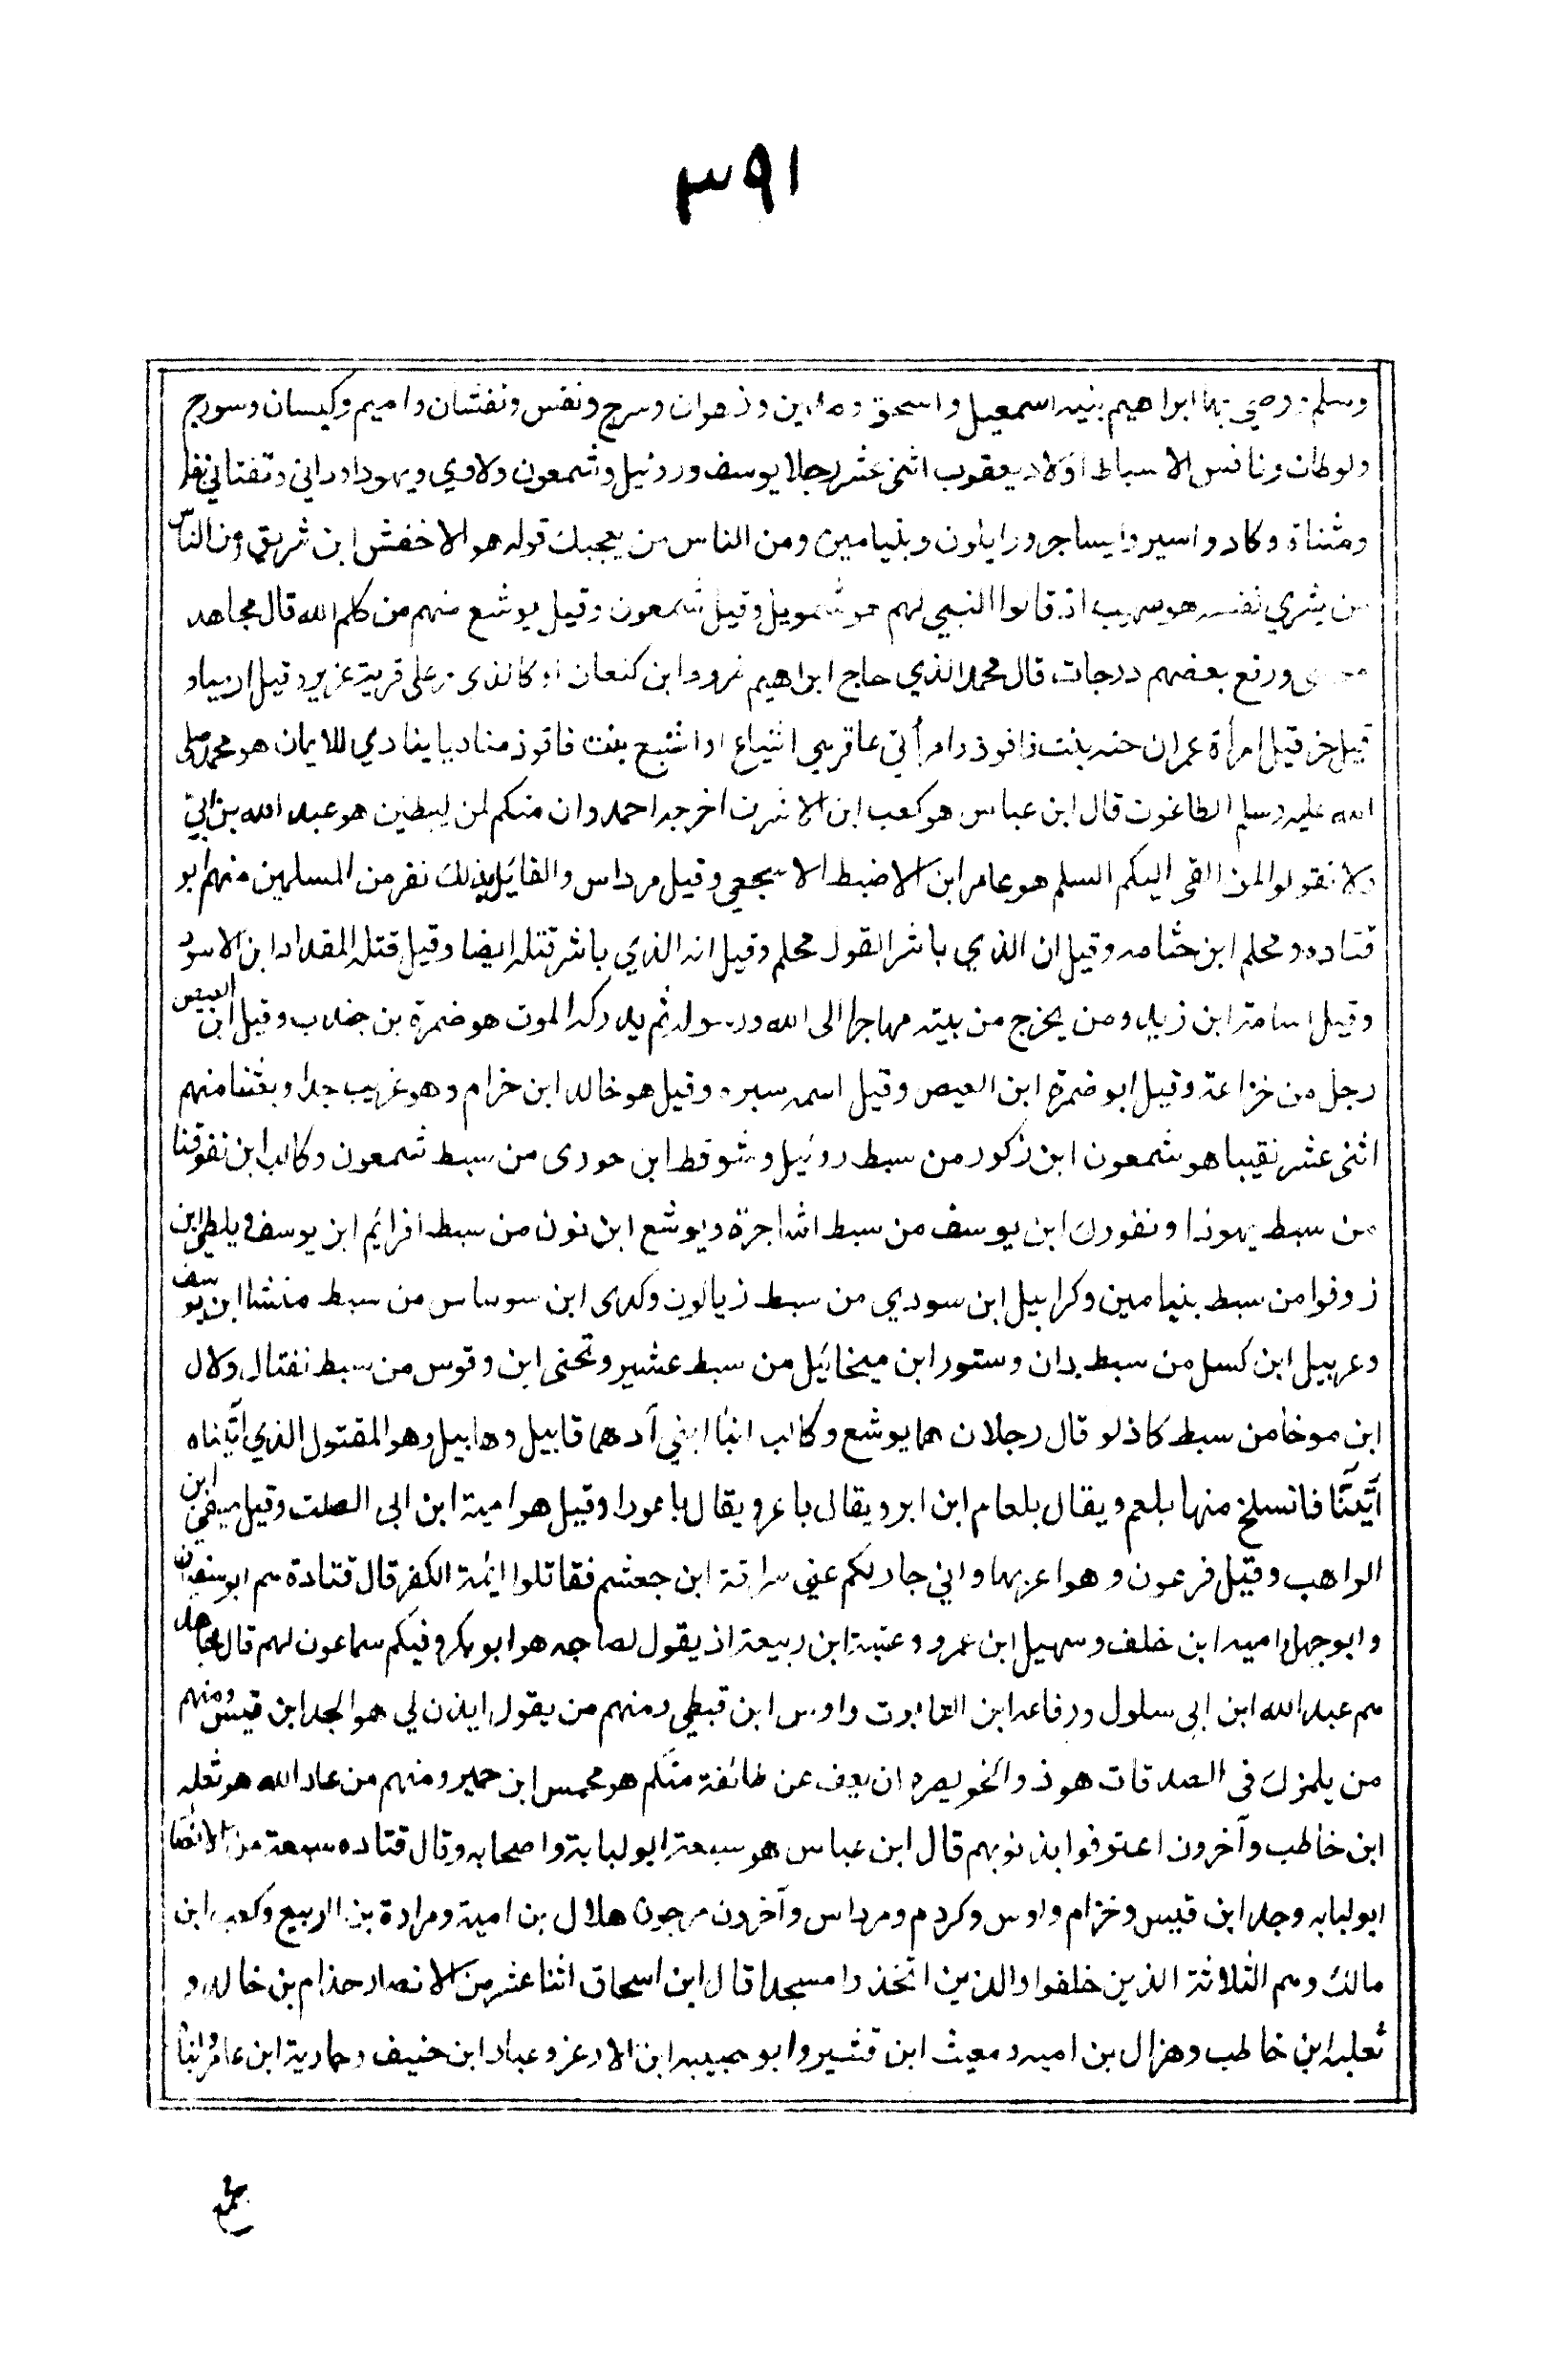 ٣٩١
وسلم ووصى بها ابراهيم بنيه اسمعيل واسحق ومداين وزهوان وسرج ونفس ونفشان واميم وكيسان وسورج
ولوطان ونافس الاسباط اولاد يعقوب اثنى عشر رجلا يوسف وروئيل وشمعون ولاوي ويهودا وداني وتفتاني
ومثناة وكاد واسير وايساجر ورايلون وبنيامين ومن الناس من يعجبك قوله هو الاخفش ابن شريق ومن الناس
من يشري نفسه هو صهيب اذ قالوا لنبي لهم هو شمويل وقيل شمعون وقيل يوشع منهم من كلم الله قال مجاهد
موسى ورفع بعضهم درجات قال محمد الذي حاج ابراهيم نمرود ابن كنعان او كالذى مر على قرية عزير وقيل ارمياو
قيل حزقيل امرأة عمران حنه بنت فاقوذ وامرأتي عاقر هي اشياع او اشيع بنت فاقوذ مناديا ينادي للايمان هو محمد صلى
الله عليه وسلم الطاغوت قال ابن عباس هو كعب ابن الاشرف اخرجه احمد وان منكم لمن ليبطئن هو عبد الله بن ابي
ولا تقولوا لمن القى اليكم السلم هو عامر ابن الاضبط الاشجعي وقيل مرداس والقائل بذلك نفر من المسلمين منهم ابو
قتاده ومحلم ابن جثامه وقيل ان الذي باشر القول محلم وقيل انه الذي باشر قتله ايضا وقيل قتله المقداد ابن الاسود
وقيل اسامة ابن زيد ومن يخرج من بيته مهاجرا الى الله ورسوله ثم يدركه الموت هو ضمرة بن جندب وقيل ابن العيص
رجل من خزاعة وقيل ابو ضمرة ابن العيص وقيل اسمه سبره وقيل هو خالد ابن خزام وهو غريب جدا وبعثنا منهم
اثنى عشر نقيبا هو شمعون ابن زكور من سبط روئيل وشوقط ابن حورى من سبط شمعون وكالب ابن نفوقنا
من سبط يهوذا ونفورك ابن يوسف من سبط اشاجرة ويوشع ابن نون من سبط افرائيم ابن يوسف ويلطى ابن
زوفوا من سبط بنيامين وكرابيل ابن سودي من سبط زيالون وكدى ابن سوساس من سبط منشا ابن يوسف
وعربيل ابن كسل من سبط دان وستور ابن ميخائيل من سبط عشير وتحنى ابن وقوس من سبط نفتال ولال
ابن موخا من سبط كاذلو قال رجلان هما يوشع وكالب انبأ ابني آدم هما قابيل وهابيل وهو المقتول الذي آتيناه
آيتنا فانسلخ منها بلعم ويقال بلعام ابن ابر ويقال باعر ويقال باعورا وقيل هو امية ابن ابى الصلت وقيل صيفي ابن
الراهب وقيل فرعون وهو اعزبها واني جار لكم عني سراقة ابن جعشم فقاتلوا ائمة الكفر قال قتادة هم ابو سفيان
وابوجهل واميه ابن خلف وسهيل ابن عمرو وعتبة ابن ربيعة اذ يقول لصاحبه هو ابوبكر وفيكم سماعون لهم قال مجاهد
هم عبد الله ابن ابى سلول ورفاعه ابن التابوت واوس ابن قبطي ومنهم من يقول ايذن لي هو الجد ابن قيس ومنهم
من يلمزك فى الصدقات هو ذو الخويصره ان يعف عن طائفة منكم هو محمس ابن حمير ومنهم من عاد الله هو ثعلبه
ابن خاطب وآخرون اعترفوا بذنوبهم قال ابن عباس هو سبعة ابو لبابة واصحابه وقال قتاده سبعة من الانصا
ابو لبابه وجد ابن قيس وخزام واوس وكردم ومرداس وآخرون مرجون هلال بن امية ومرارة بن الربيع وكعب ابن
مالك وهم الثلاثة الذين خلفوا والذين اتخذوا مسجدا قال ابن اسحاق اثنا عشر من الانصار حذام بن خالد و
ثعلبه ابن خاطب وهزال بن اميه ومعيث ابن قشير وابو حبيبه ابن الازعر وعباد ابن حنيف وجارية ابن عامر وابنا